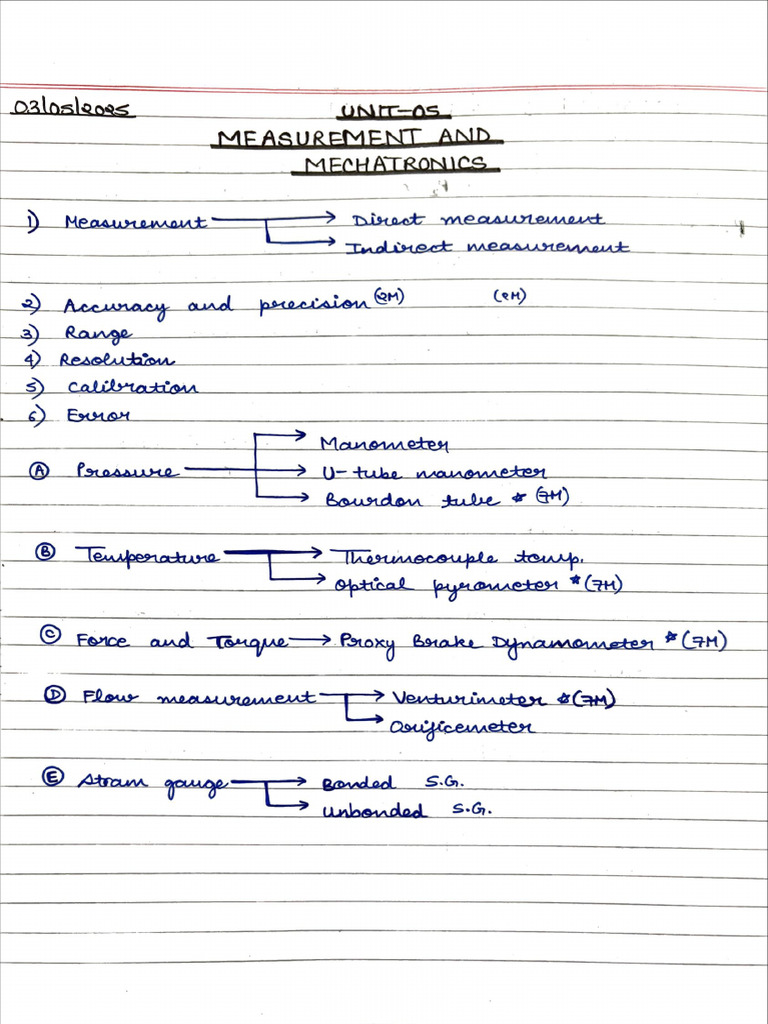 03/05/2025 UNIT-05
MEASUREMENT AND
MECHATRONICS
1) Measurement → Direct measurement
→ Indirect measurement
2) Accuracy and precision (2M) (2M)
3) Range
4) Resolution
5) Calibration
6) Error
→ Manometer
Ⓐ Pressure → U-tube manometer
→ Bourdon tube * (7M)
Ⓑ Temperature → Thermocouple temp.
→ Optical pyrometer * (7M)
Ⓒ Force and Torque → Proxy Brake Dynamometer * (7M)
Ⓓ Flow measurement → Venturimeter * (7M)
→ Orificemeter
Ⓔ Stram gauge → Bonded S.G.
→ Unbonded S.G.